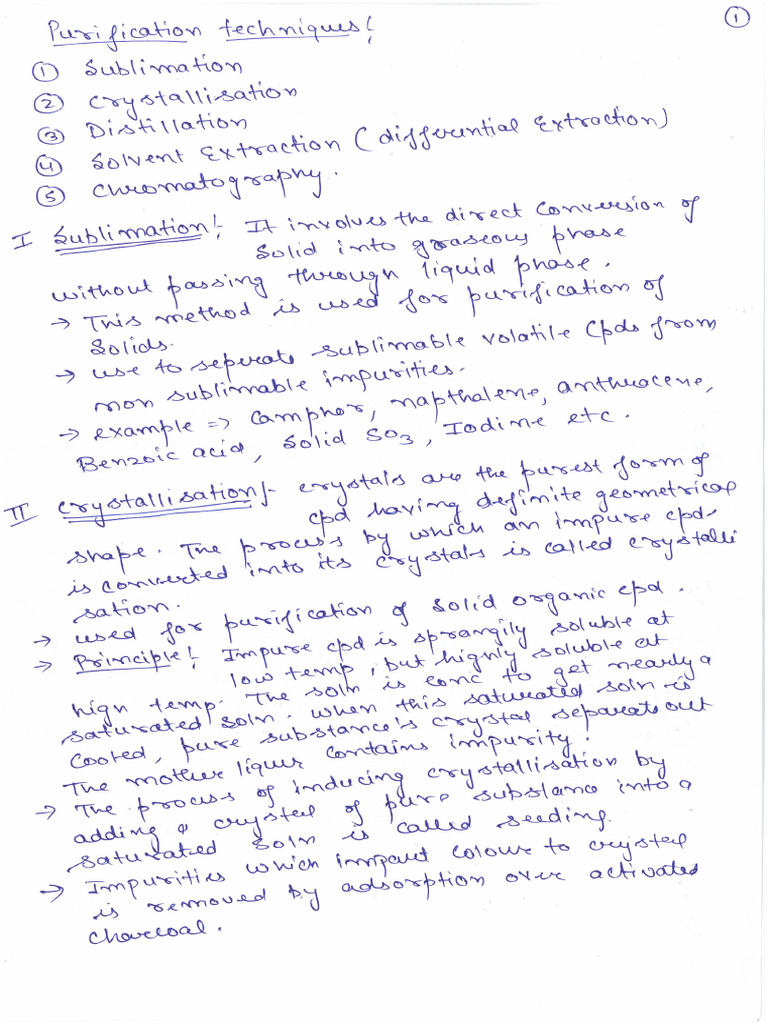 Purification techniques :
①
① Sublimation
② Crystallisation
③ Distillation
④ Solvent Extraction (differential Extraction)
⑤ Chromatography.
I Sublimation :- It involves the direct conversion of
Solid into graseous phase
without passing through liquid phase.
→ This method is used for purification of
Solids.
→ use to seperate sublimable volatile Cpds from
non sublimable impurities.
→ example => Camphor, napthalene, anthracene,
Benzoic acid, Solid SO3, Iodine etc.
II Crystallisation :- crystals are the purest form of
cpd having definite geometrical
shape. The process by which an impure cpd
is converted into its crystals is called crystalli
sation.
→ used for purification of solid organic cpd.
→ Principle :- Impure cpd is sprangily soluble at
low temp, but highly soluble at
high temp. The soln is conc to get nearly a
saturated soln. when this saturated soln is
cooled, pure substance's crystal separate out
The mother liquer contains impurity.
→ The process of inducing crystallisation by
adding a crystal of pure substance into a
saturated soln is called seeding.
→ Impurities which impart colour to crystal
is removed by adsorption over activated
charcoal.